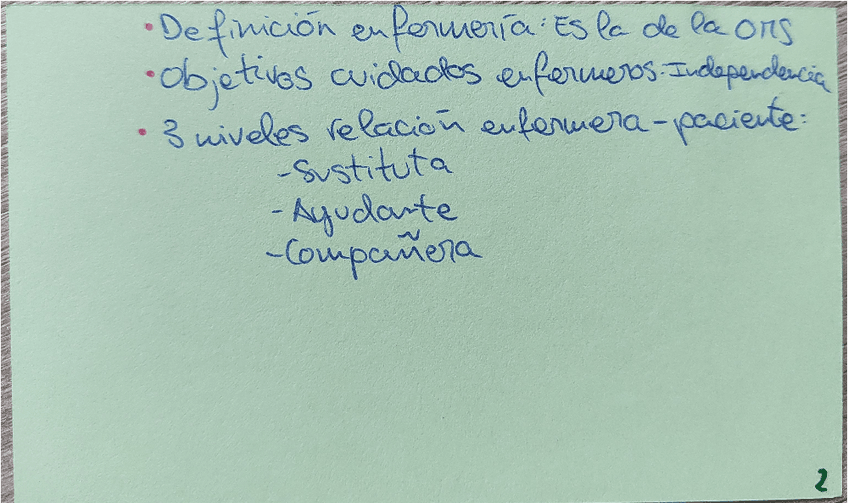 • Definición enfermería: Es la de la OMS
• Objetivos cuidados enfermeros. Independencia
• 3 niveles relación enfermera - paciente:
- Sustituta
- Ayudante
- Compañera
2